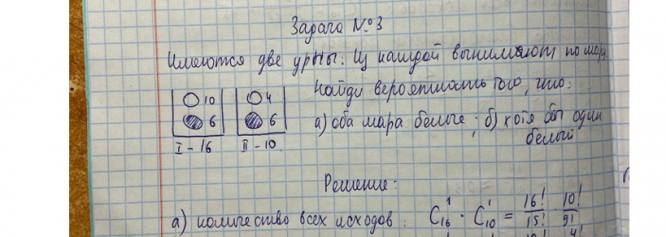 Задача №3
Имеются две урны. Из каждой вынимают по шару.
Найди вероятность того, что:
10 4
6 6
а) оба шара белые; б) хотя бы один
белый
I - 16 II - 10.
Решение:
а) количество всех исходов: C¹₁₆ · C¹₁₀ = 16!/15! · 10!/9!